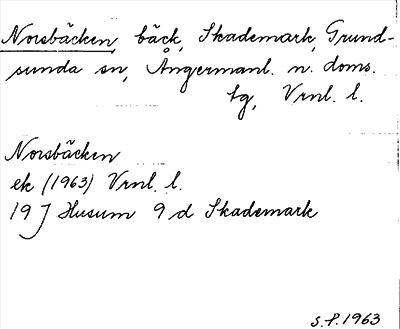 Norsbäcken, bäck, Skademark, Grund-
sunda sn, Ångermanl. n. doms.
tg, Vrnl. l.
Norsbäcken
ek (1963) Vrnl. l.
19 J Husum 9 d Skademark
S.P. 1963